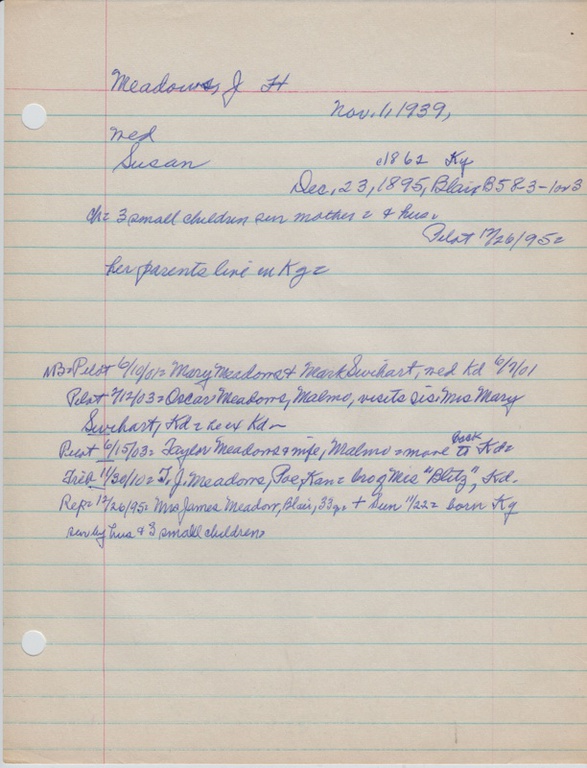 Meadows, J H
Nov. 1, 1939,
wed
Susan
c1862 Ky
Dec, 23, 1895, Blair B583-1or3
ch= 3 small children sur mother = & hus.
Pilot 12/26/95=
her parents live in Ky=
NB= Pilot 6/10/01= Mary Meadows & Mark Swihart, wed Kd 6/7/01
Pilot 7/12/03= Oscar Meadows, Malmo, visits sis Mrs Mary
Swihart, Kd = he ex Kd~
Pilot 6/15/03= Taylor Meadows & wife, Malmo = move back to Kd=
Trib 11/30/10= T. J. Meadows, Poe, Kan= bro of Mrs "Blitz", Kd.
Rep= 12/26/95= Mrs James Meadow, Blair, 33y. + Sun 11/22= born Ky
sur by hus & 3 small children=